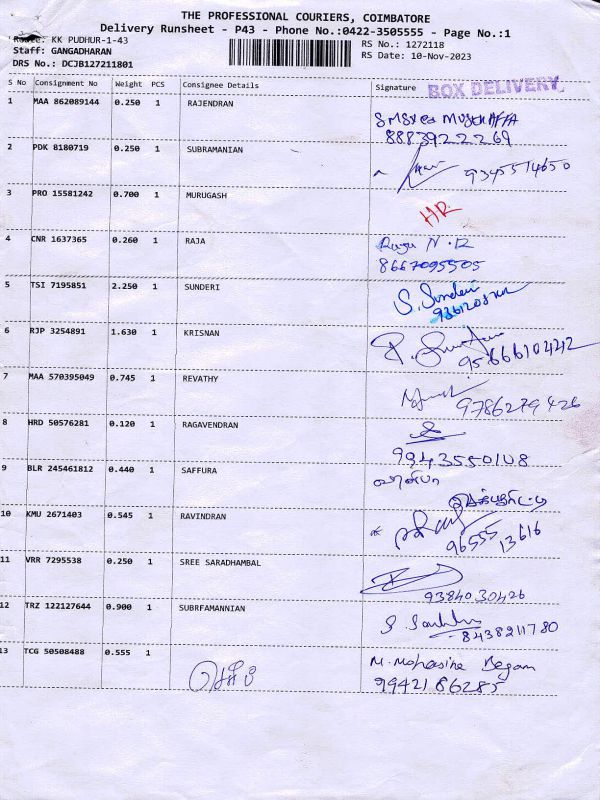 THE PROFESSIONAL COURIERS, COIMBATORE
Delivery Runsheet - P43 - Phone No.:0422-3505555 - Page No.:1
Route: KK PUDHUR-1-43
Staff: GANGADHARAN
DRS No.: DCJB127211801
RS No.: 1272118
RS Date: 10-Nov-2023
S No Consignment No Weight PCS Consignee Details Signature
BOX DELIVERY
1 MAA 862089144 0.250 1 RAJENDRAN
8883922269
2 PDK 8180719 0.250 1 SUBRAMANIAN
9345514650
3 PRO 15581242 0.700 1 MURUGASH
HR
4 CNR 1637365 0.260 1 RAJA
8667095505
5 TSI 7195851 2.250 1 SUNDERI
S. Sunderi
6 RJP 3254891 1.630 1 KRISNAN
9566610442
7 MAA 570395049 0.745 1 REVATHY
9786279426
8 HRD 50576281 0.120 1 RAGAVENDRAN
9943550148
9 BLR 245461812 0.440 1 SAFFURA
10 KMU 2671403 0.545 1 RAVINDRAN
96555 13616
11 VRR 7295538 0.250 1 SREE SARADHAMBAL
9384030426
12 TRZ 122127644 0.900 1 SUBRFAMANNIAN
8438211780
13 TCG 50508488 0.555 1
M. Mohasina Begam
9942186285